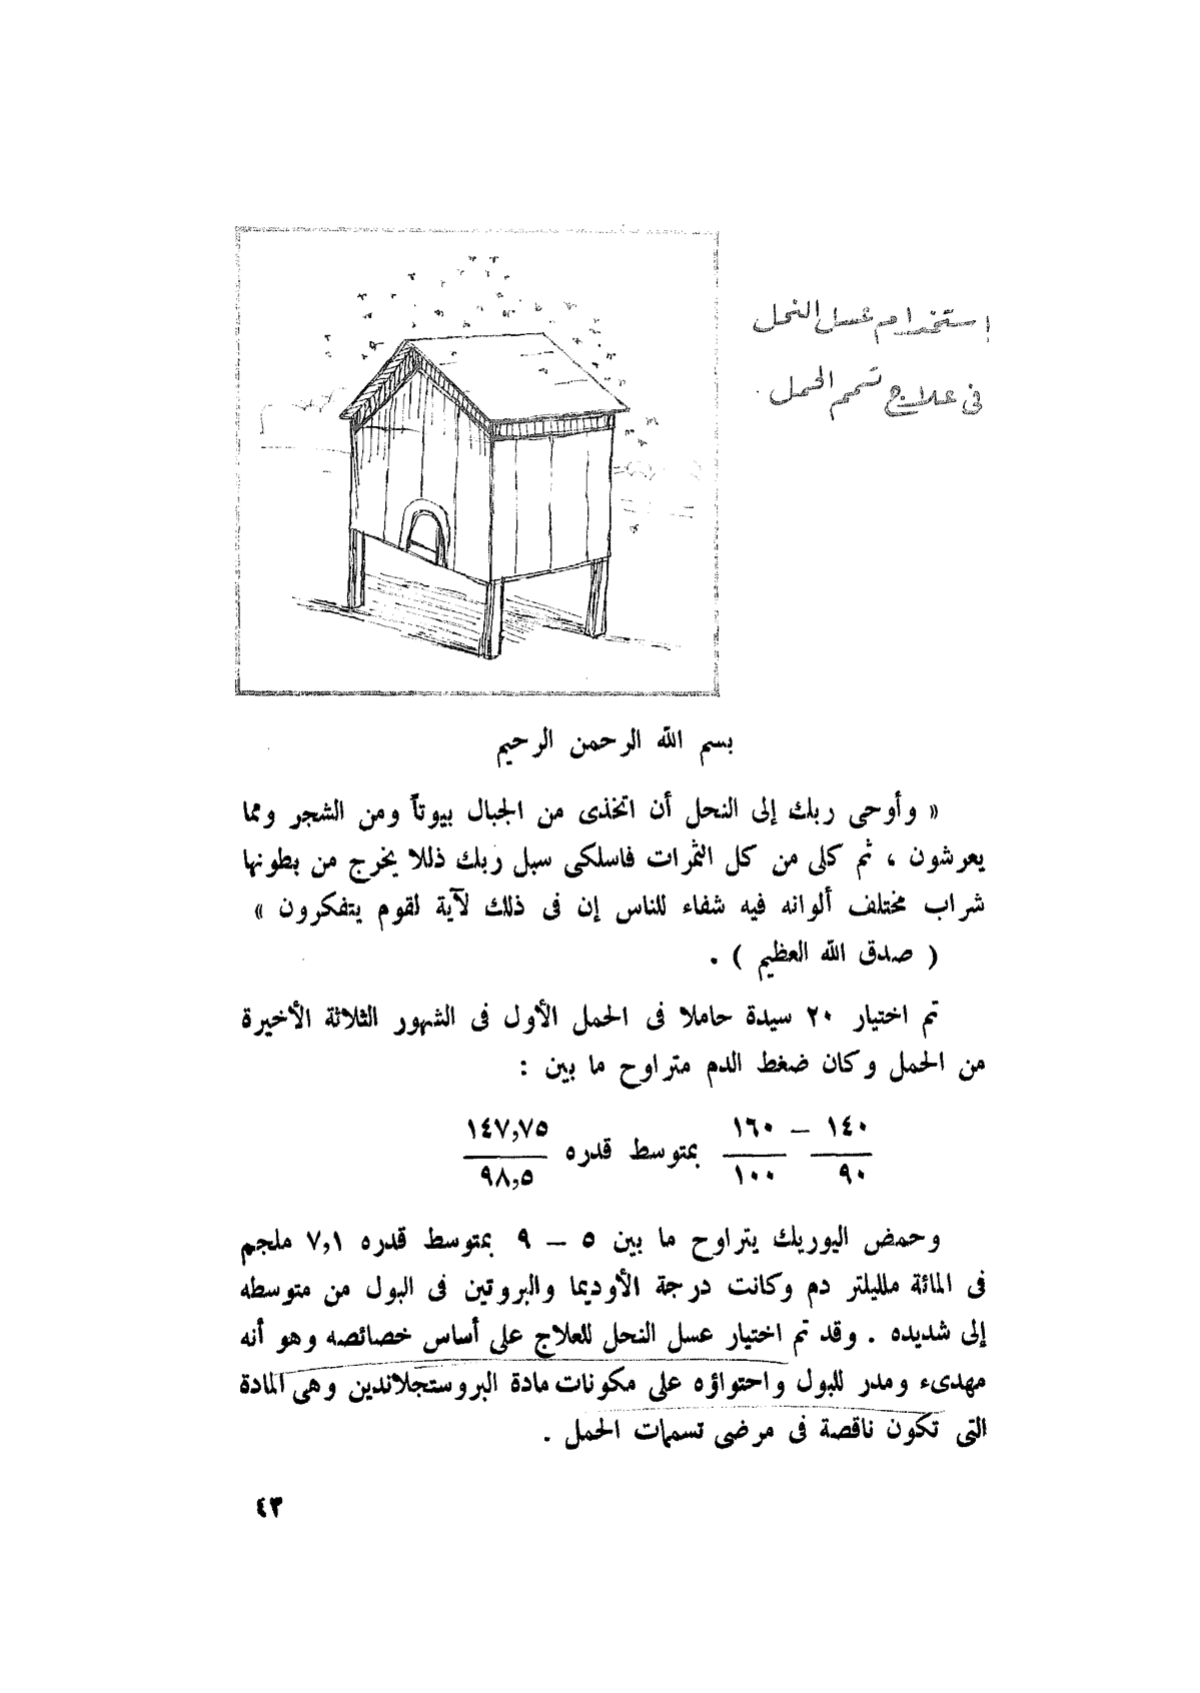 إستخدام عسل النحل
فى علاج تسمم الحمل .
بسم الله الرحمن الرحيم
« وأوحى ربك إلى النحل أن اتخذى من الجبال بيوتاً ومن الشجر ومما
يعرشون ، ثم كلى من كل الثمرات فاسلكى سبل ربك ذللا يخرج من بطونها
شراب مختلف ألوانه فيه شفاء للناس إن فى ذلك لآية لقوم يتفكرون »
( صدق الله العظيم ) .
تم اختيار ٢٠ سيدة حاملا فى الحمل الأول فى الشهور الثلاثة الأخيرة
من الحمل وكان ضغط الدم متراوح ما بين :
١٤٠ – ١٦٠ ١٤٧,٧٥
بمتوسط قدره
٩٠ ١٠٠ ٩٨,٥
وحمض اليوريك يتراوح ما بين ٥ – ٩ بمتوسط قدره ٧,١ ملجم
فى المائة ملليلتر دم وكانت درجة الأوديما والبروتين فى البول من متوسطه
إلى شديده . وقد تم اختيار عسل النحل للعلاج على أساس خصائصه وهو أنه
مهدىء ومدر للبول واحتواؤه على مكونات مادة البروستجلاندين وهى المادة
التى تكون ناقصة فى مرضى تسممات الحمل .
٤٣